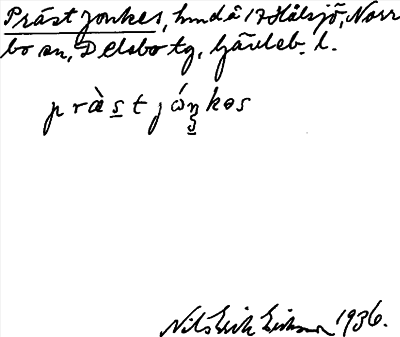 Präst Jonkes, hmd å 17 Hålsjö, Norr
bo sn, Delsbo tg, Gävleb. l.
pràs̲t jóŋ̲kəs
Nils Erik Eriksson 1936.